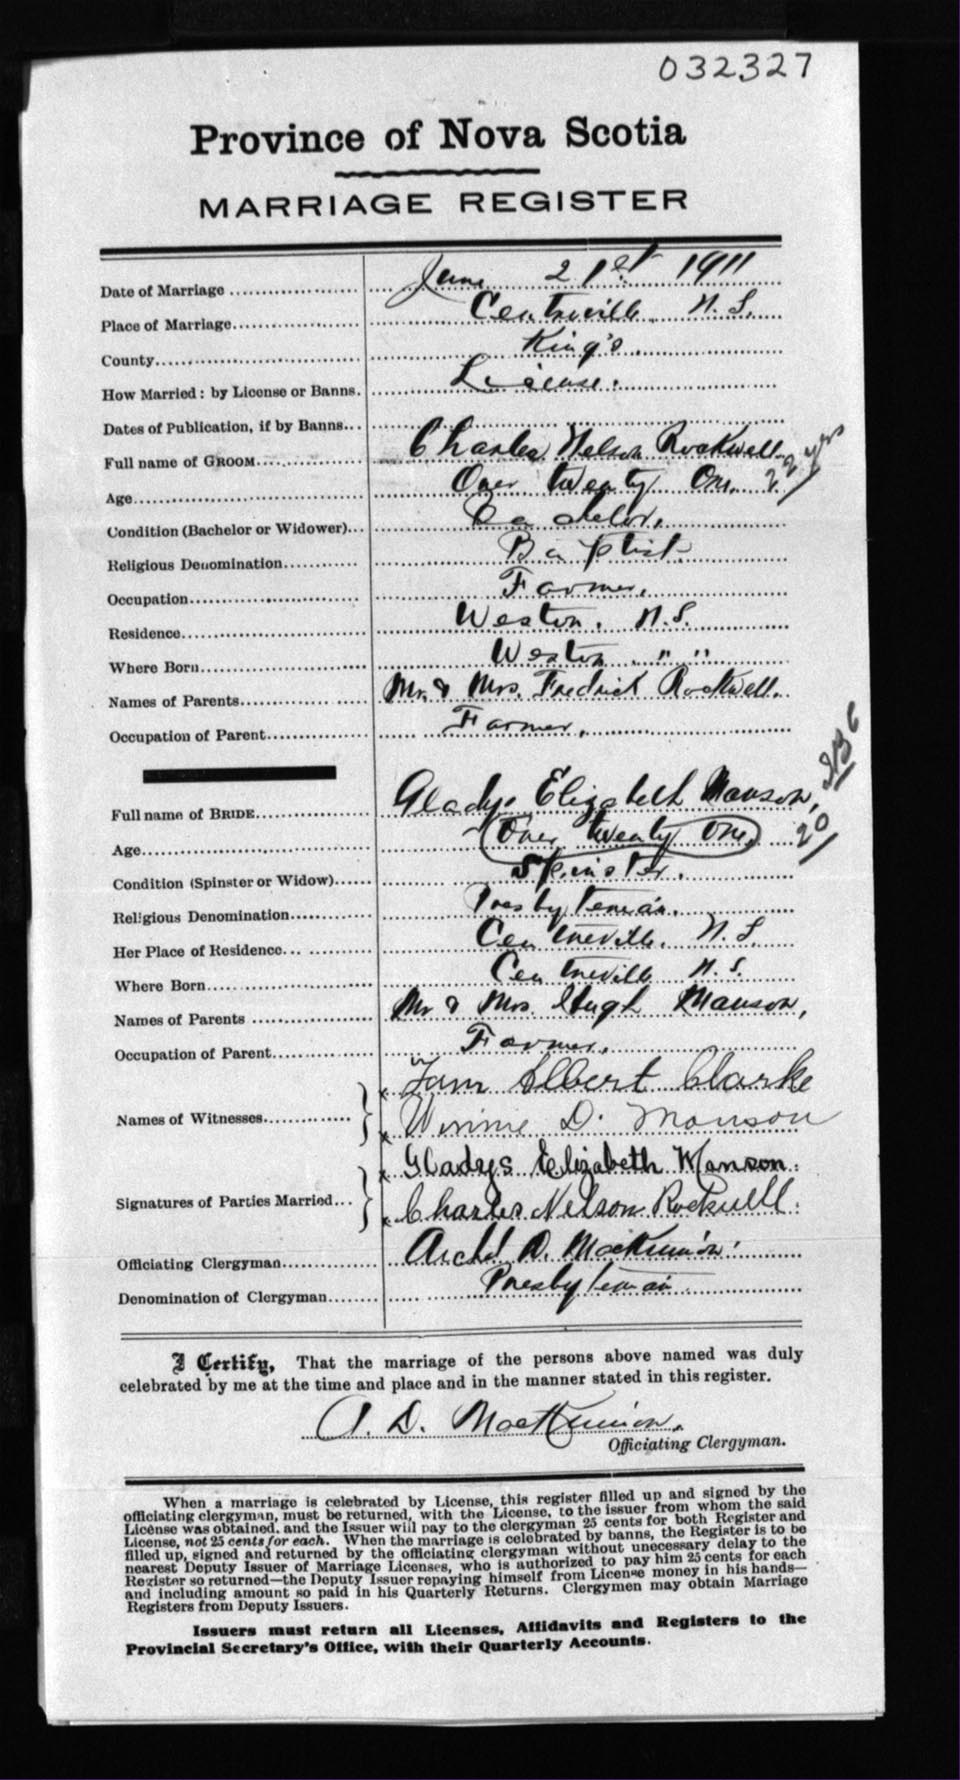 032327
Province of Nova Scotia
MARRIAGE REGISTER
Date of Marriage June 21st 1911
Place of Marriage Centreville N. S.
County King's
How Married: by License or Banns. License.
Dates of Publication, if by Banns
Full name of GROOM Charles Nelson Rockwell
Age Over twenty One. 22 yrs
Condition (Bachelor or Widower) Bachelor.
Religious Denomination Baptist
Occupation Farmer.
Residence Weston. N.S.
Where Born Weston " "
Names of Parents Mr. & Mrs. Fredrick Rockwell.
Occupation of Parent Farmer.
Full name of BRIDE Gladys Elizabeth Manson,
Age Over twenty One. 20
Condition (Spinster or Widow) Spinster.
Religious Denomination Presbyterian.
Her Place of Residence Centreville. N. S.
Where Born Centreville N. S.
Names of Parents Mr & Mrs. Hugh Manson,
Occupation of Parent Farmer.
Names of Witnesses x Albert Clarke
x Winnie D. Manson
Signatures of Parties Married x Gladys Elizabeth Manson.
x Charles Nelson Rockwell.
Officiating Clergyman Archd D. MacKinnon.
Denomination of Clergyman Presbyterian.
I Certify, That the marriage of the persons above named was duly
celebrated by me at the time and place and in the manner stated in this register.
A. D. MacKinnon.
Officiating Clergyman.
When a marriage is celebrated by License, this register filled up and signed by the
officiating clergyman, must be returned, with the License, to the issuer from whom the said
License was obtained, and the Issuer will pay to the clergyman 25 cents for both Register and
License, not 25 cents for each. When the marriage is celebrated by banns, the Register is to be
filled up, signed and returned by the officiating clergyman without unecessary delay to the
nearest Deputy Issuer of Marriage Licenses, who is authorized to pay him 25 cents for each
Register so returned—the Deputy Issuer repaying himself from License money in his hands—
and including amount so paid in his Quarterly Returns. Clergymen may obtain Marriage
Registers from Deputy Issuers.
Issuers must return all Licenses, Affidavits and Registers to the
Provincial Secretary's Office, with their Quarterly Accounts.